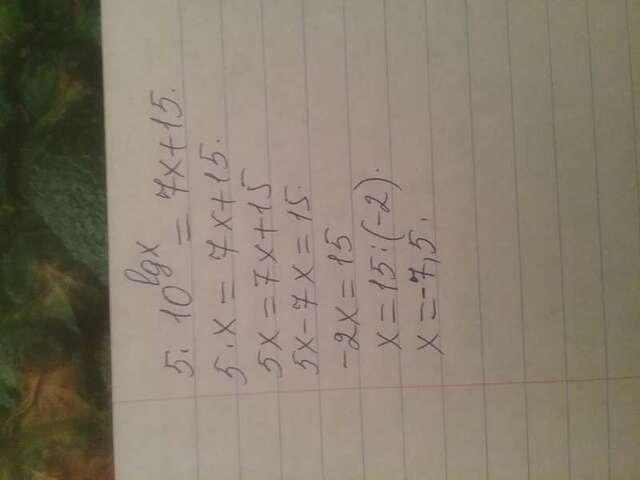 5·10^lgx = 7x+15.
5·x = 7x+15.
5x=7x+15
5x-7x=15.
-2x=15
x=15:(-2).
x=-7,5.